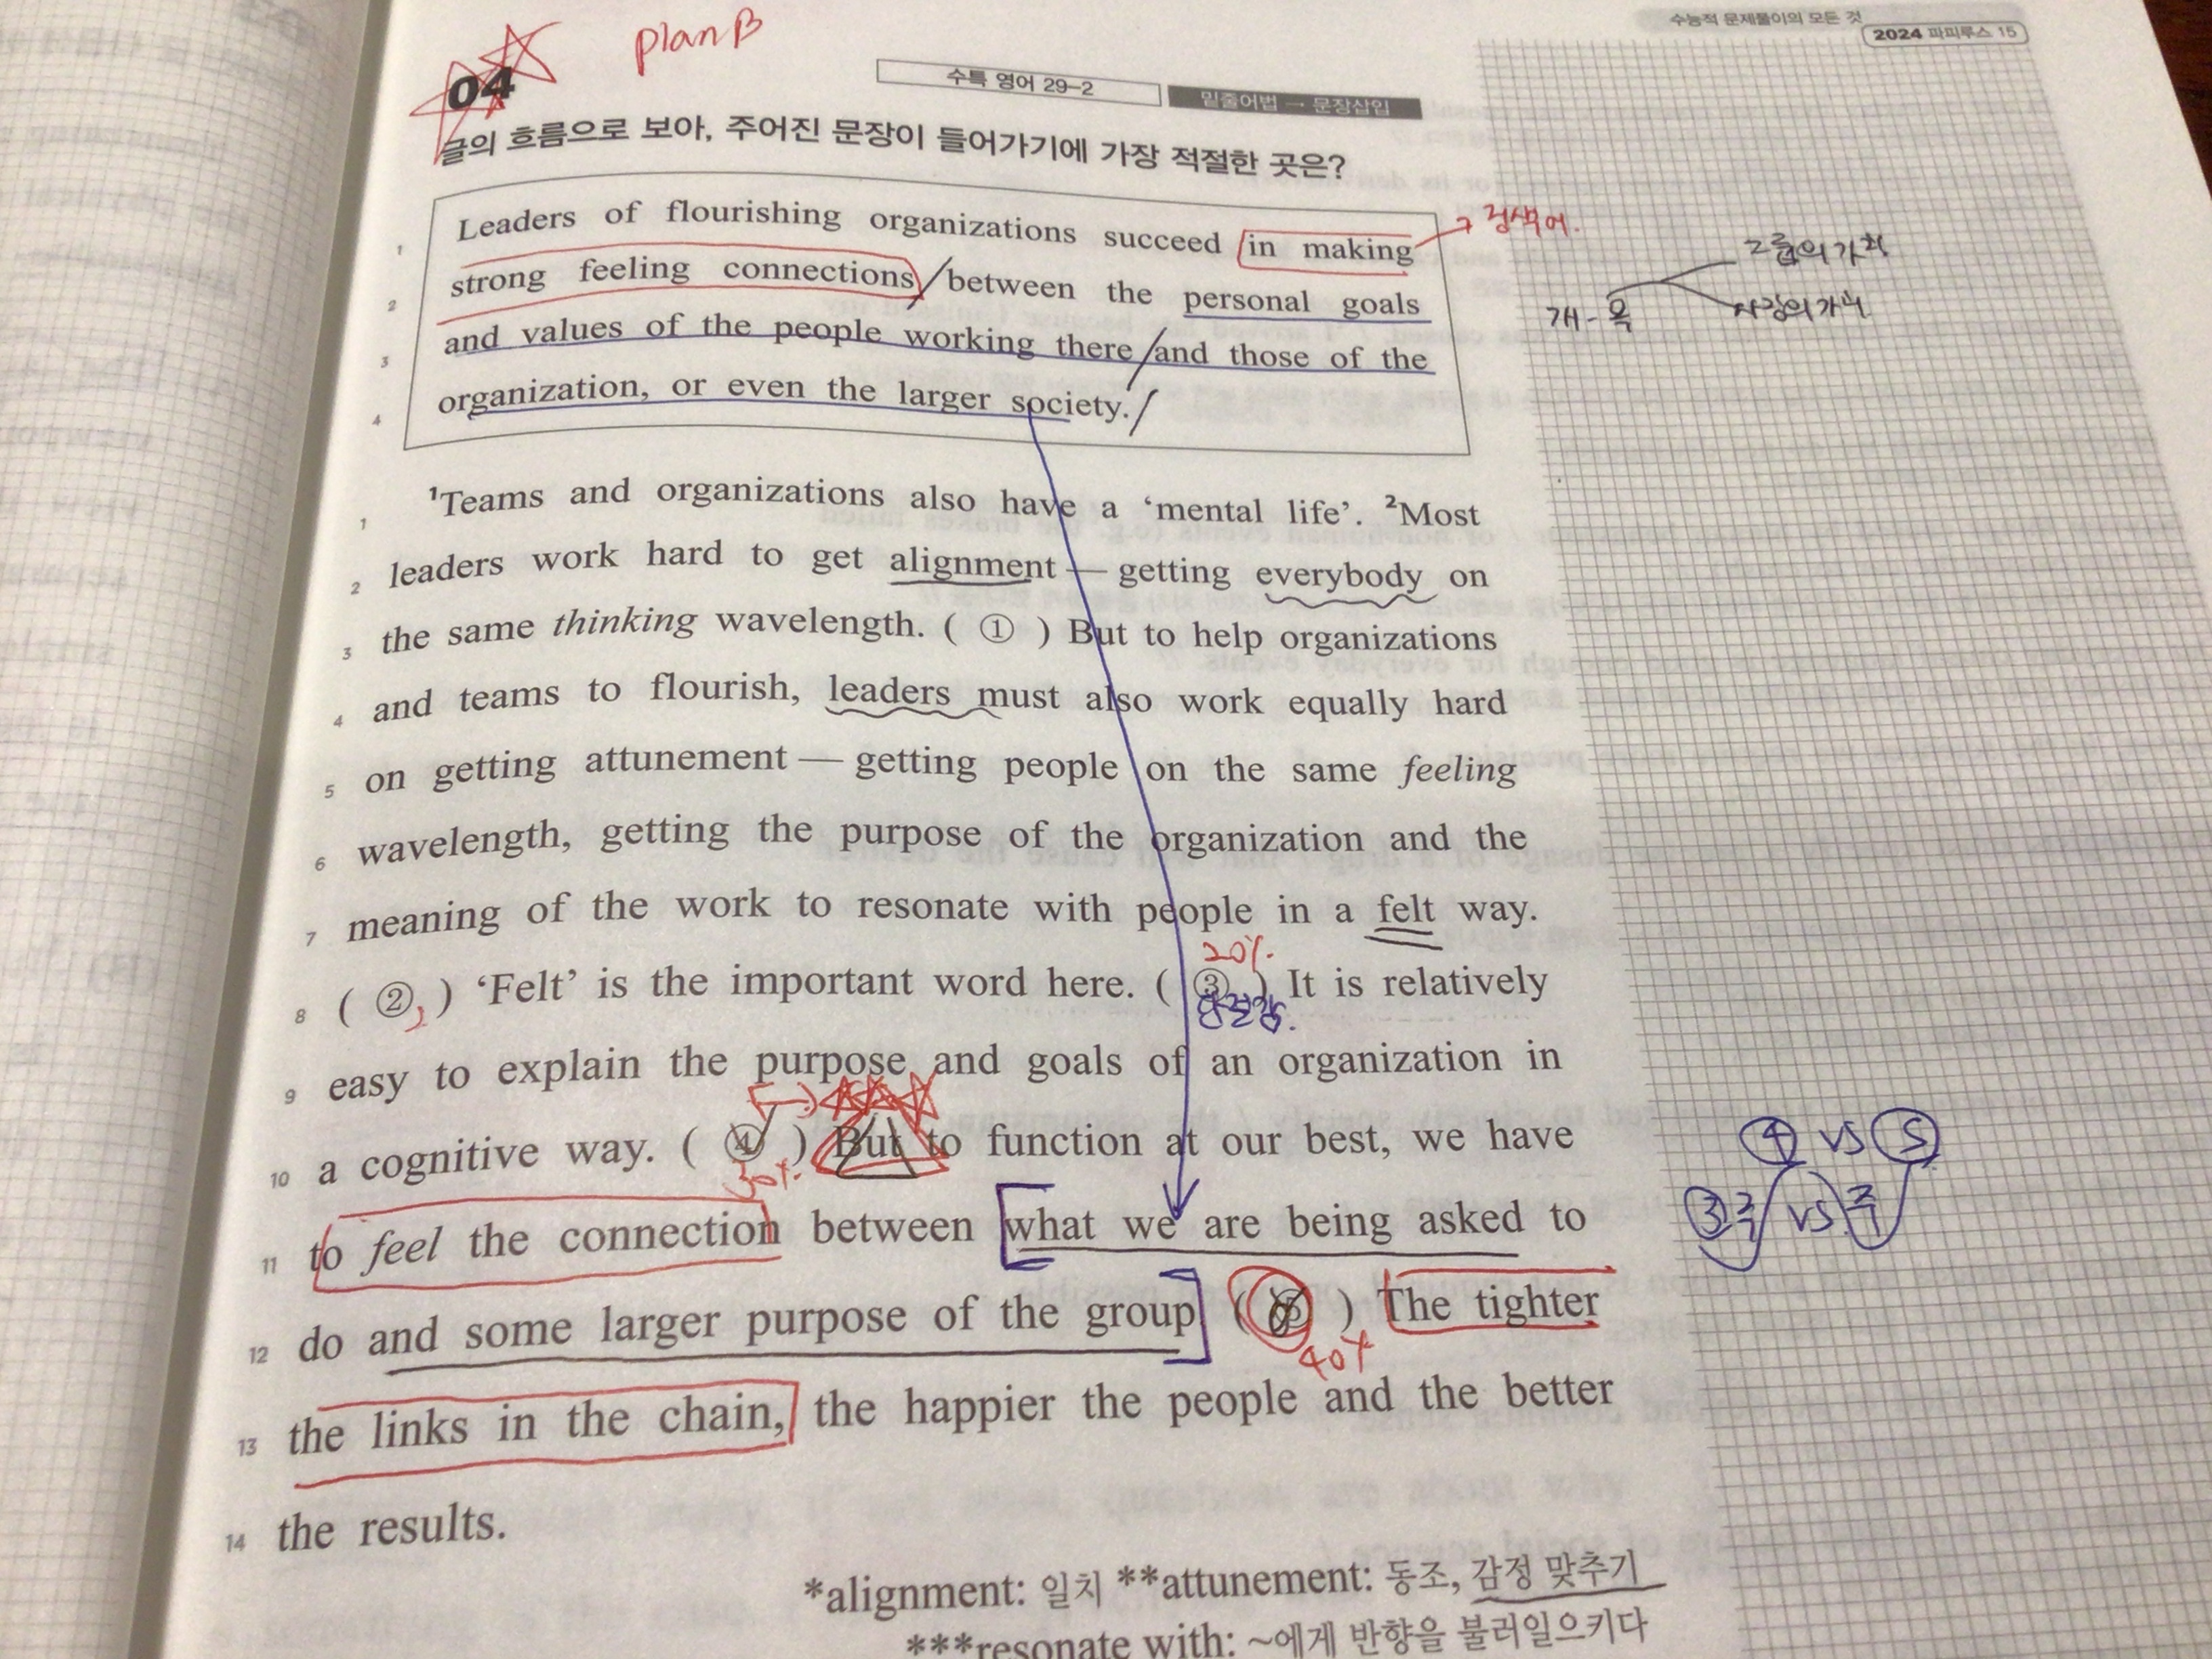 수능적 문제풀이의 모든 것
2024 파피루스 15
plan B
04
수특 영어 29-2
밑줄어법 → 문장삽입
글의 흐름으로 보아, 주어진 문장이 들어가기에 가장 적절한 곳은?
1 Leaders of flourishing organizations succeed in making
→ 검색어.
2 strong feeling connections between the personal goals
3 and values of the people working there and those of the
4 organization, or even the larger society.
그룹의 가치
개-목
1 ¹Teams and organizations also have a ‘mental life’. ²Most
2 leaders work hard to get alignment — getting everybody on
3 the same thinking wavelength. ( ① ) But to help organizations
4 and teams to flourish, leaders must also work equally hard
5 on getting attunement — getting people on the same feeling
6 wavelength, getting the purpose of the organization and the
7 meaning of the work to resonate with people in a felt way.
20%
8 ( ② ) ‘Felt’ is the important word here. ( ③ ) It is relatively
9 easy to explain the purpose and goals of an organization in
10 a cognitive way. ( ④ ) But to function at our best, we have
30%
④ vs ⑤
11 to feel the connection between what we are being asked to
③ vs
12 do and some larger purpose of the group ( ⑤ ) The tighter
40%
13 the links in the chain, the happier the people and the better
14 the results.
*alignment: 일치 **attunement: 동조, 감정 맞추기
***resonate with: ~에게 반향을 불러일으키다